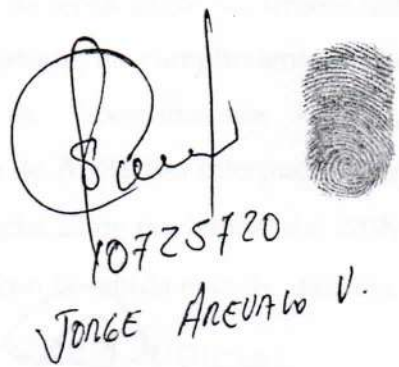 10725720
JORGE AREVALO V.